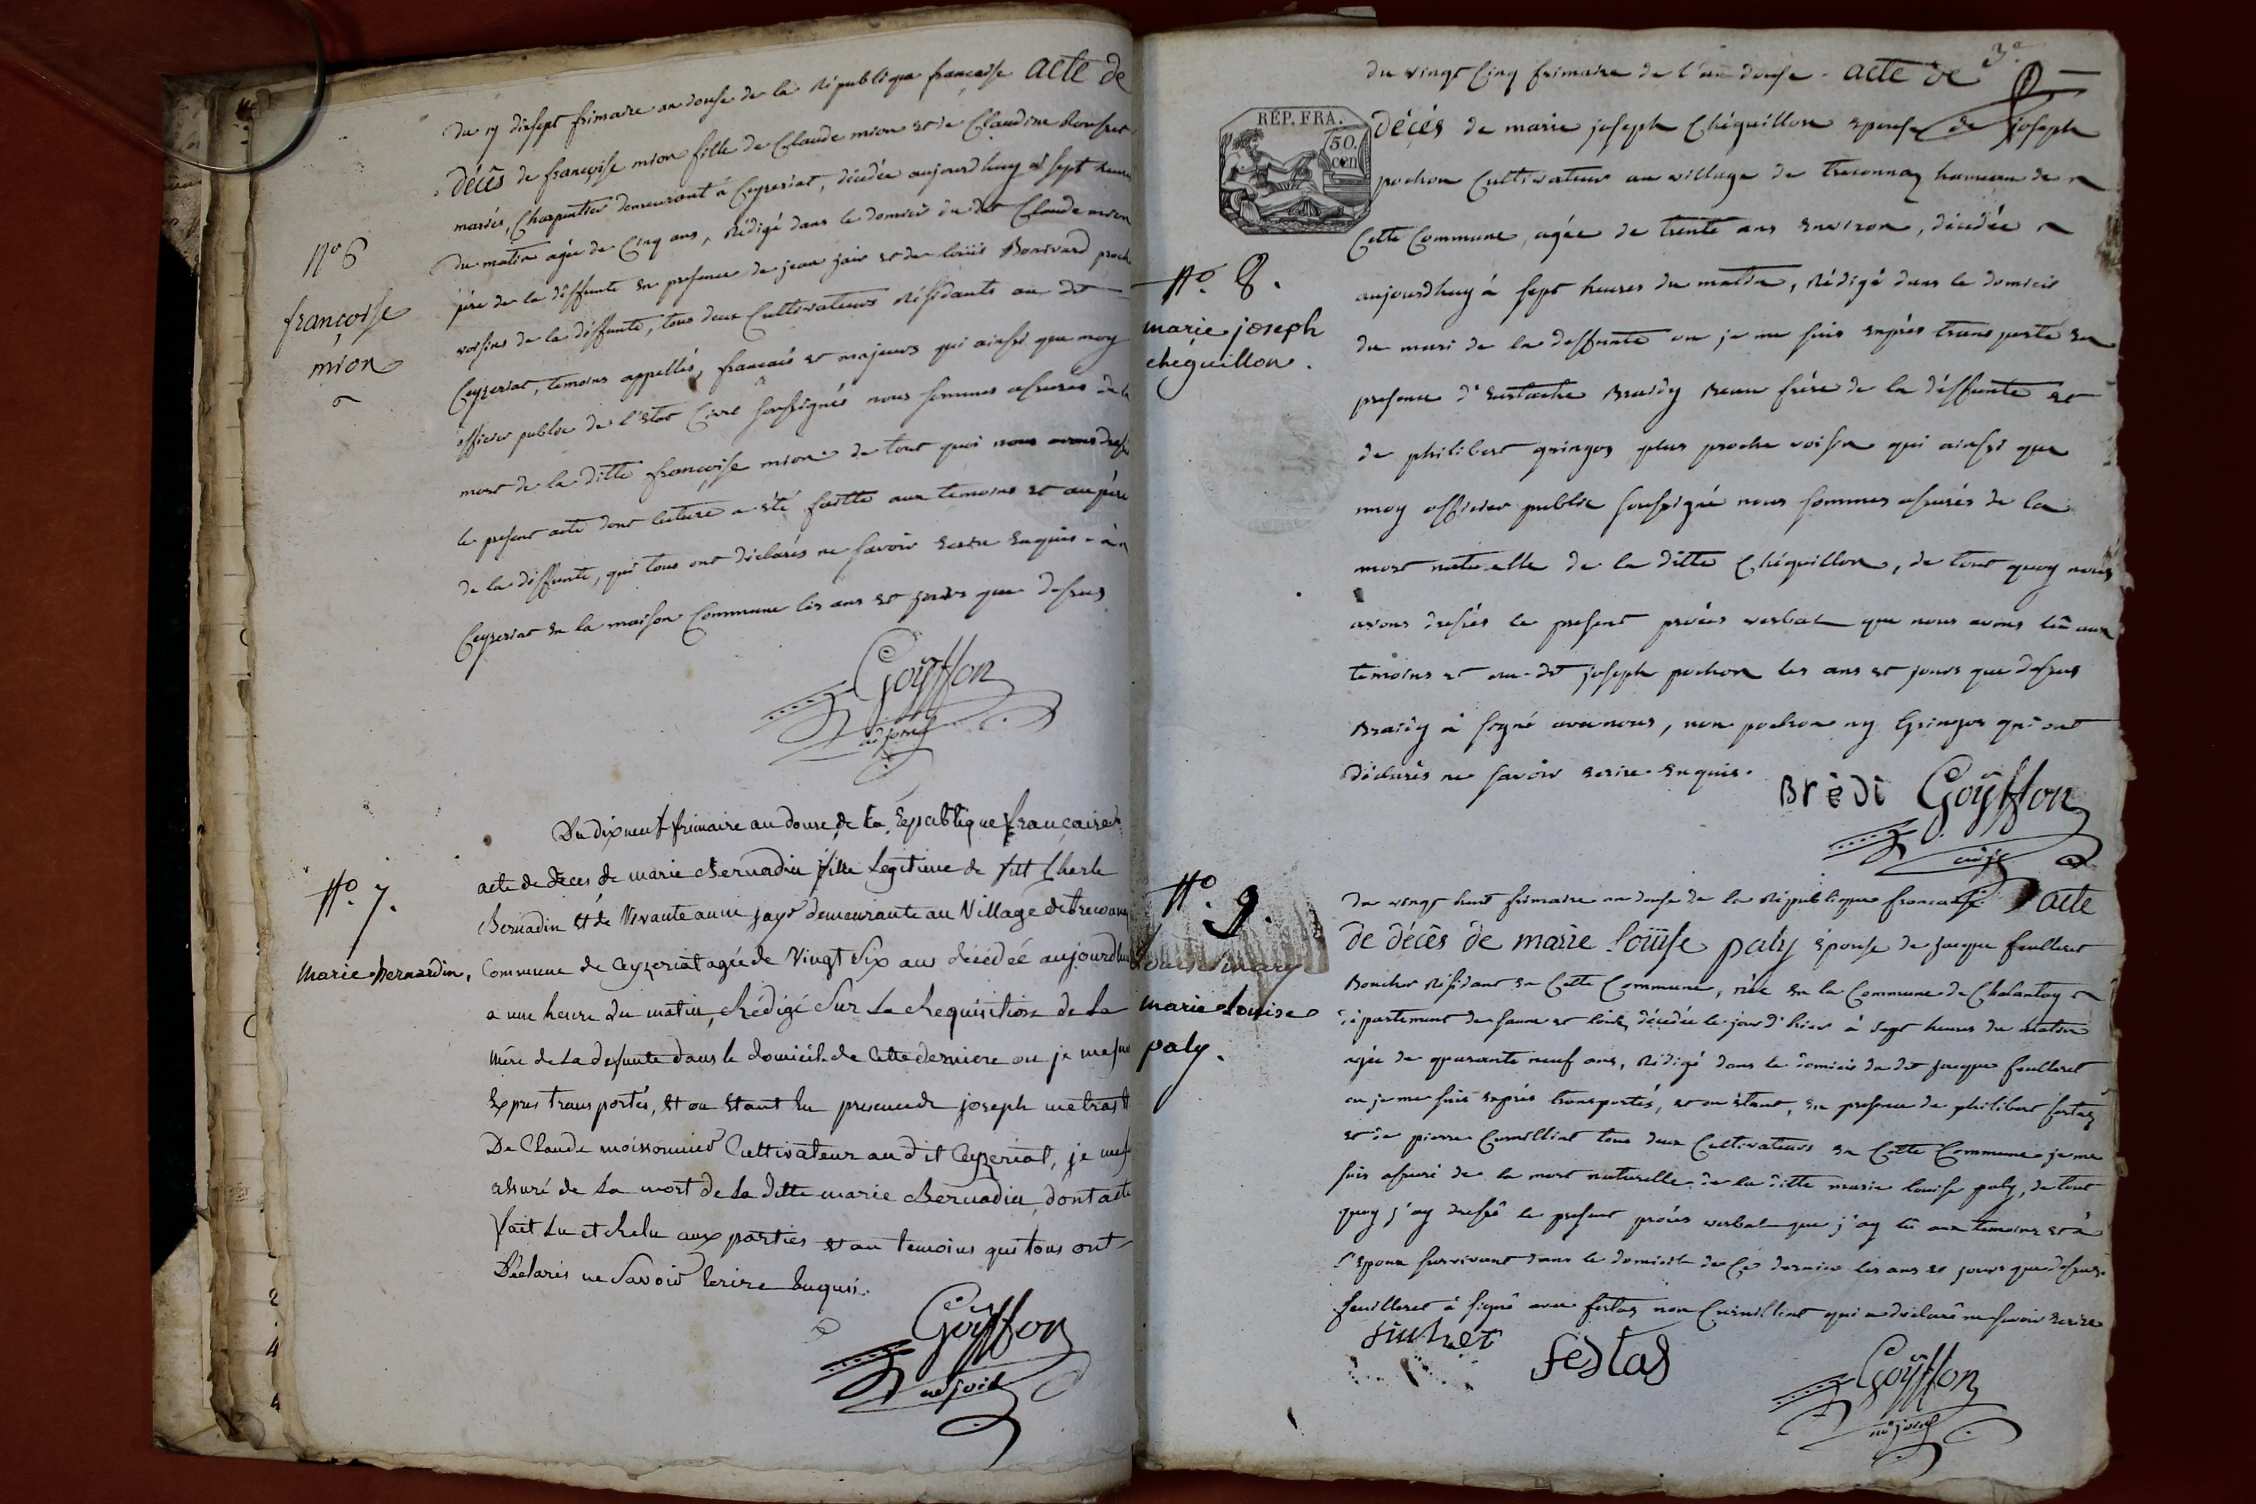 du 17 dixsept frimaire an douse de la République francaise acte de
décês de françoise mion fille de Claude mion et de Claudine
mariés, Charpentier demeurant à Ceyzeriat, décédée aujourd'huy à sept heures
du matin agée de Cinq ans, Rédigé dans le domicis du dit Claude mion
père de la deffunte en presence de jean jair et de louis Bonivard proche
voisins de la deffunte, tous deux Cultivateurs Résidants au dit
Ceyzeriat, temoins appellés, francais et majeurs qui ainssi que moy
officier public de l'Etat Civil soussignés nous sommes assurés de la
mort de la ditte françoise mion de tout quoi nous avons dressé
le present acte dont lecture a été faitte aux temoins et au père
de la deffunte, qui tous ont déclarés ne savoir ecrire enquis - à
Ceyzeriat en la maison Commune les ans et jours que dessus
Goÿffon
adjoint
No 6
françoise
mion
Du dixneuf frimaire an douze de la Republique francaise
acte de dèces de marie Bernadin fille Legitime de fitt Cherle
Bernadin et de Vivante anne jayr demeurante au Village de trecona
Commune de Ceyzeriat agée de Vingt Six ans décédéé aujourdhui
a une heure du matin, Rédigé Sur La Requisition de La
mère de La defunte dans le domicile de Cette derniere ou je me suis
Expres transportés, et ou étant En presence de joseph metras et
De Claude moissonnier Cultivateur au dit Ceyzeriat, je me suis
assuré de La mort de La ditte marie Bernadin, dont acte
fait Lu et Relu aux parties et au temoins qui tous ont
Déclarés ne Savoir Ecrire Enquis.
Goÿffon
adjoint
No. 7.
Marie Bernardin,
3e
du vingt Cinq frimaire de l'an douse - acte de
décés de marie joseph Chéguillon epouse de joseph
pochon Cultivateur au village de treconnaz hameau de
Cette Commune, agée de trente ans Environ, décédée
aujourdhuy à sept heures du matin, Rédigé dans le domicis
du mari de la deffunte ou je me suis exprès transporté en
presence d'Eustache Braidy Beau frère de la déffunte et
de philibert gringoz plus proche voisin qui ainssi que
moy officier public soussigné nous sommes assurés de la
mort naturelle de la ditte Chéguillon, de tout quoy nous
avons dressés le present procès verbal que nous avons lû aux
temoins et au dit joseph pochon les ans et jours que dessus
Braidy à signé avec nous, non pochon ny Gringoz qui ont
déclarés ne savoir ecrire enquis.
Brèdi Goÿffon
adjt
RÉP. FRA.
50.
cen
No. 8.
marie joseph
cheguillon.
du vingt huit frimaire an douse de la République francaise acte
de décês de marie loüise paly épouse de jacque feulleret
Boucher Résidant en Cette Commune, née en la Commune de
département de saune et loire, décédée le jour d'hier à sept heures du matin
agée de quarante neuf ans, Rédigé dans le domicis du dit jacque feulleret
ou je me suis exprés transportés, et ou étant, en presence de philibert festaz
et de pierre Cumilliat tous deux Cultivateurs en Cette Commune je me
suis assuré de la mort naturelle de la ditte marie louise paly, de tout
quoy j'ay dressé le present procès verbal que j'ay lû aux temoins et à
l'epoux survivant dans le domicile de Ce dernier les ans et jours que dessus
feuilleret à signé avec festaz non Cumilliat qui a déclaré ne savoir ecrire
festas
Goÿffon
adjoint
No. 9.
marie Louise
paly.